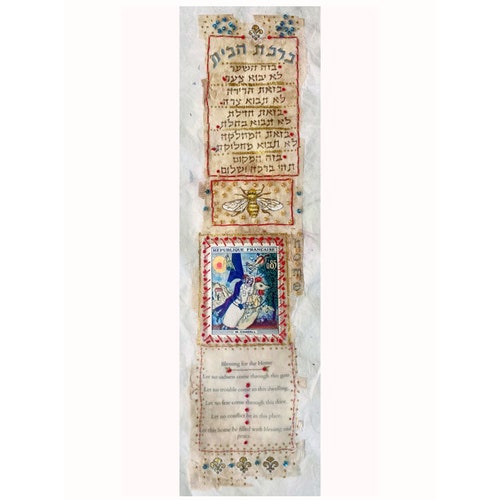 ברכת הבית
בזה השער
לא יבוא צער
בזאת הדירה
לא תבוא צרה
בזאת הדלת
לא תבוא בהלה
בזאת המחלקה
לא תבוא מחלוקת
בזה המקום
תהי ברכה ושלום
REPUBLIQUE FRANÇAISE
0,85
M. CHAGALL
Blessing for the Home
Let no sadness come through this gate
Let no trouble come to this dwelling
Let no fear come through this door
Let no conflict be in this place
Let this home be filled with blessing and
peace.